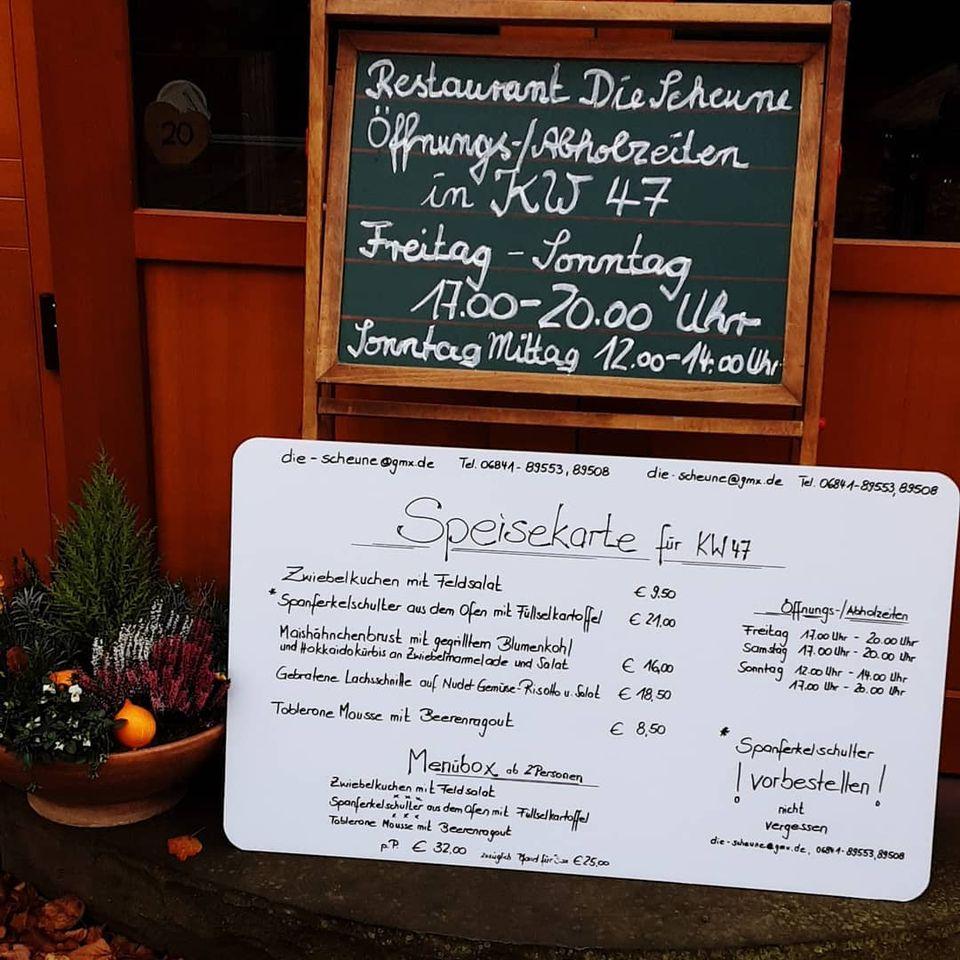 20
Restaurant Die Scheune
Öffnungs-/Abholzeiten
in KW 47
Freitag - Sonntag
17.00-20.00 Uhr
Sonntag Mittag 12.00-14:00 Uhr
die-scheune@gmx.de Tel. 06841-89553, 89508 die-scheune@gmx.de Tel. 06841-89553, 89508
Speisekarte für KW47
Zwiebelkuchen mit Feldsalat € 9.50
* Spanferkelschulter aus dem Ofen mit Füllselkartoffel € 21.00
Maishähnchenbrust mit gegrilltem Blumenkohl
und Hokkaidokürbis an Zwiebelmarmelade und Salat € 16,00
Gebratene Lachsschnitte auf Nudel Gemüse-Risotto u. Salat € 18,50
Toblerone Mousse mit Beerenragout € 8,50
Menübox ab 2 Personen
Zwiebelkuchen mit Feldsalat
* * *
Spanferkelschulter aus dem Ofen mit Füllselkartoffel
* * *
Toblerone Mousse mit Beerenragout
p.P. € 32,00 zuzüglich Pfand für € 25,00
Öffnungs-/Abholzeiten
Freitag 17.00 Uhr - 20.00 Uhr
Samstag 17.00 Uhr - 20.00 Uhr
Sonntag 12.00 Uhr - 14.00 Uhr
17.00 Uhr - 20.00 Uhr
* Spanferkelschulter
! vorbestellen !
nicht
vergessen
die-scheune@gmx.de, 06841-89553, 89508